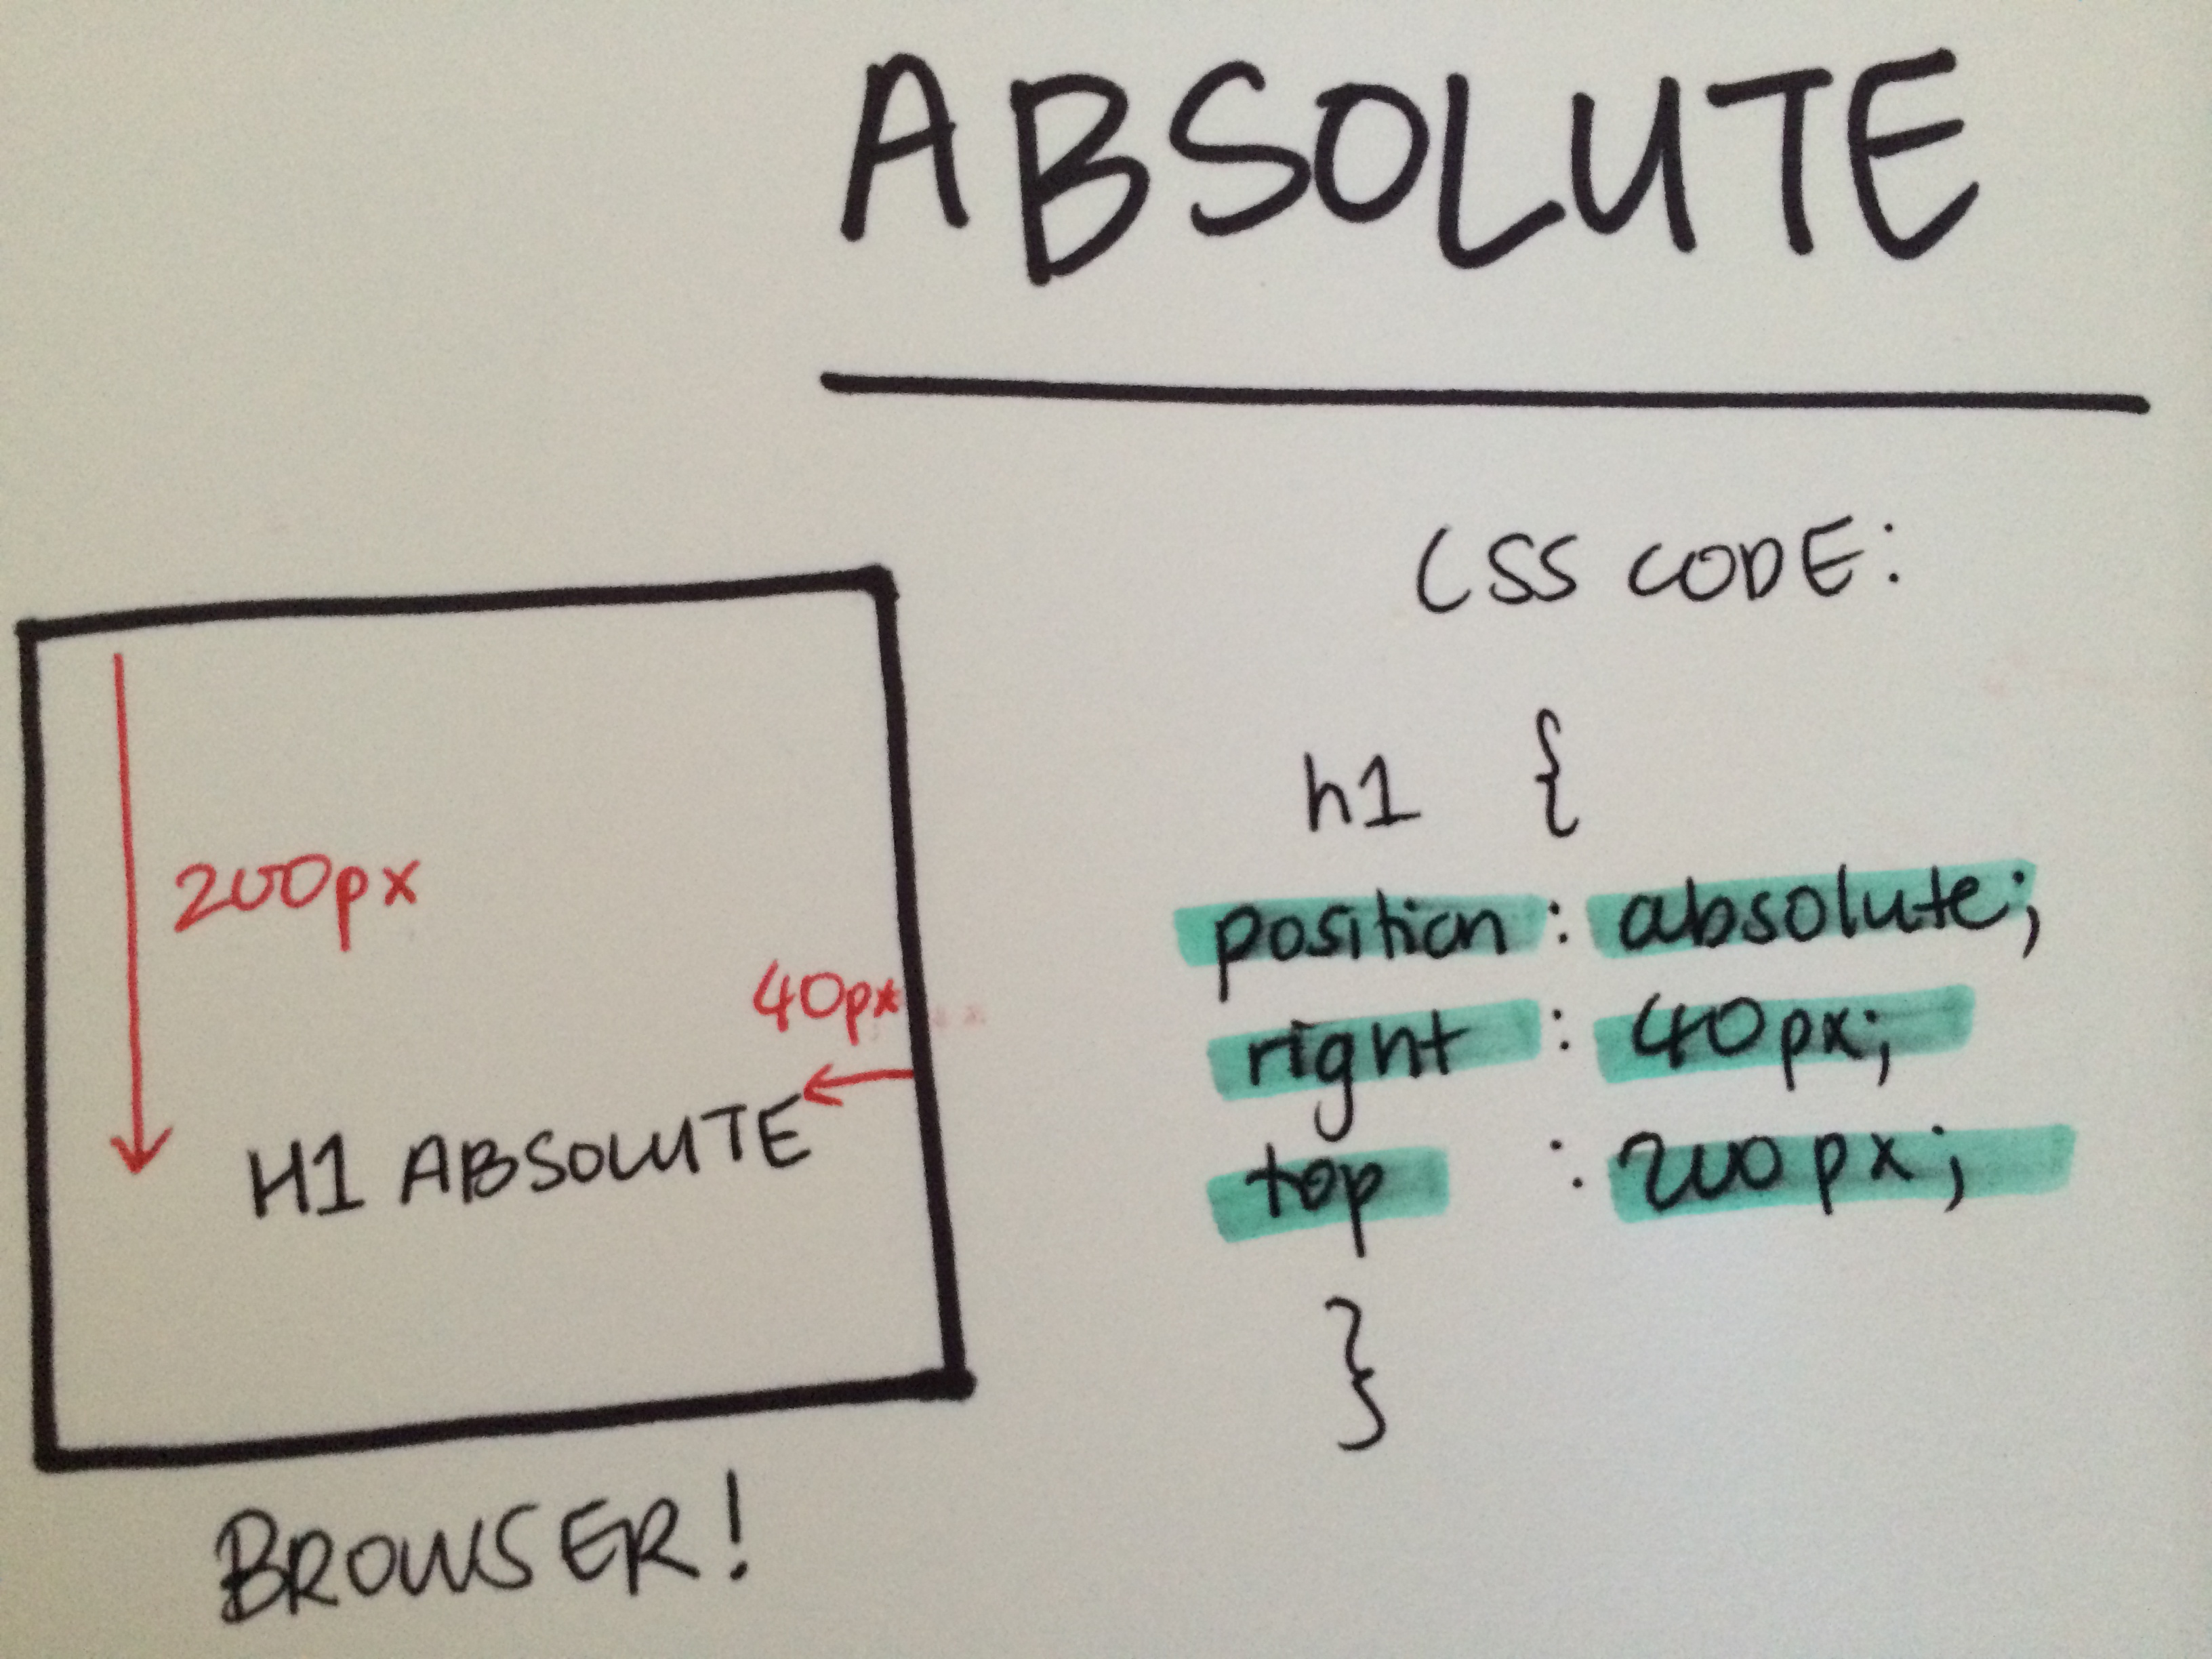 ABSOLUTE
200px
40px
H1 ABSOLUTE
BROWSER!
CSS CODE:
h1 {
position : absolute;
right : 40px;
top : 200px;
}